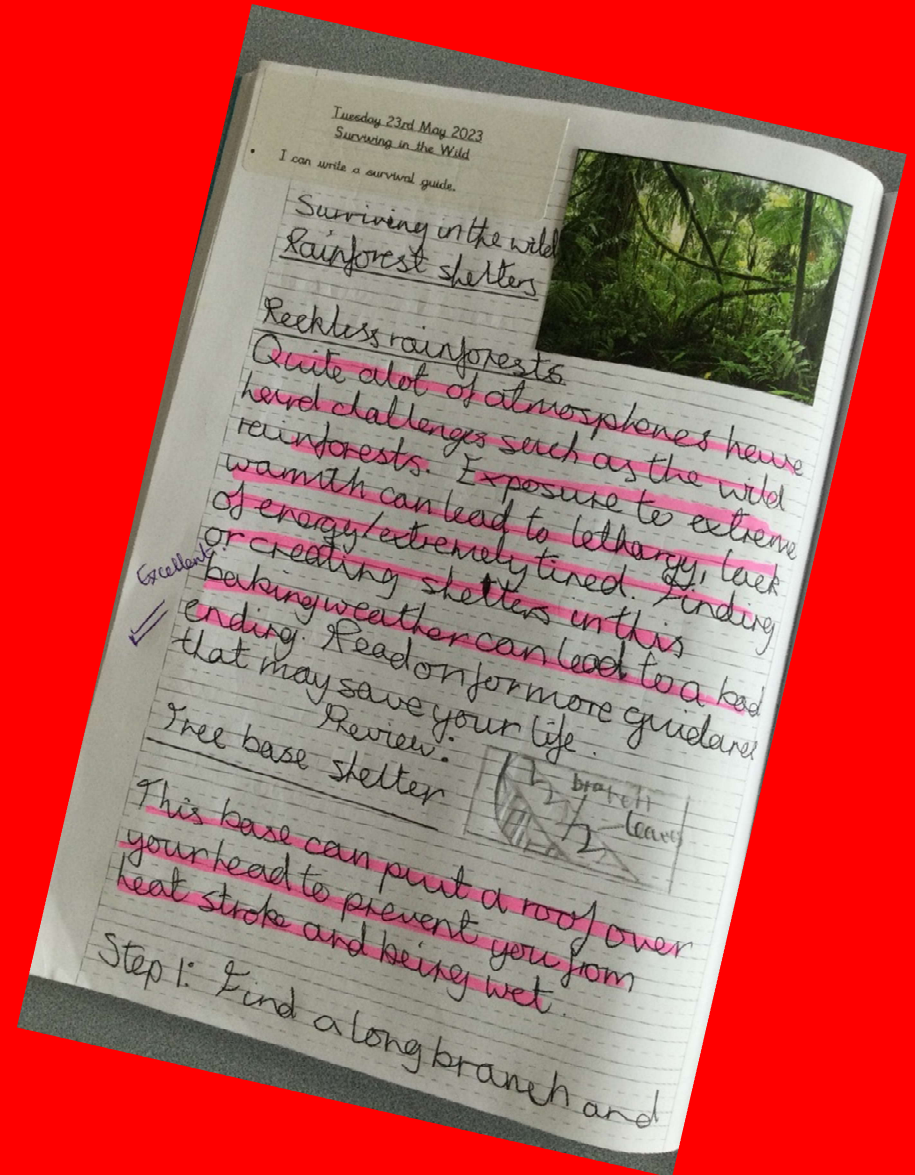 Tuesday 23rd May 2023
Surviving in the Wild
• I can write a survival guide.
Surviving in the wild
Rainforest shelters
Reckless rainforests
Quite alot of atmospheres have
herd challenges such as the wild
rainforests. Exposure to extreme
warmth can lead to lethargy, lack
of energy/extremely tired. Finding
or creating shelters in this
baking weather can lead to a bad
ending. Read on for more guidance
that may save your life.
Excellent
Review:
Tree base shelter
branch
leaves
This base can put a roof over
your head to prevent you from
heat stroke and being wet.
Step 1: Find a long branch and